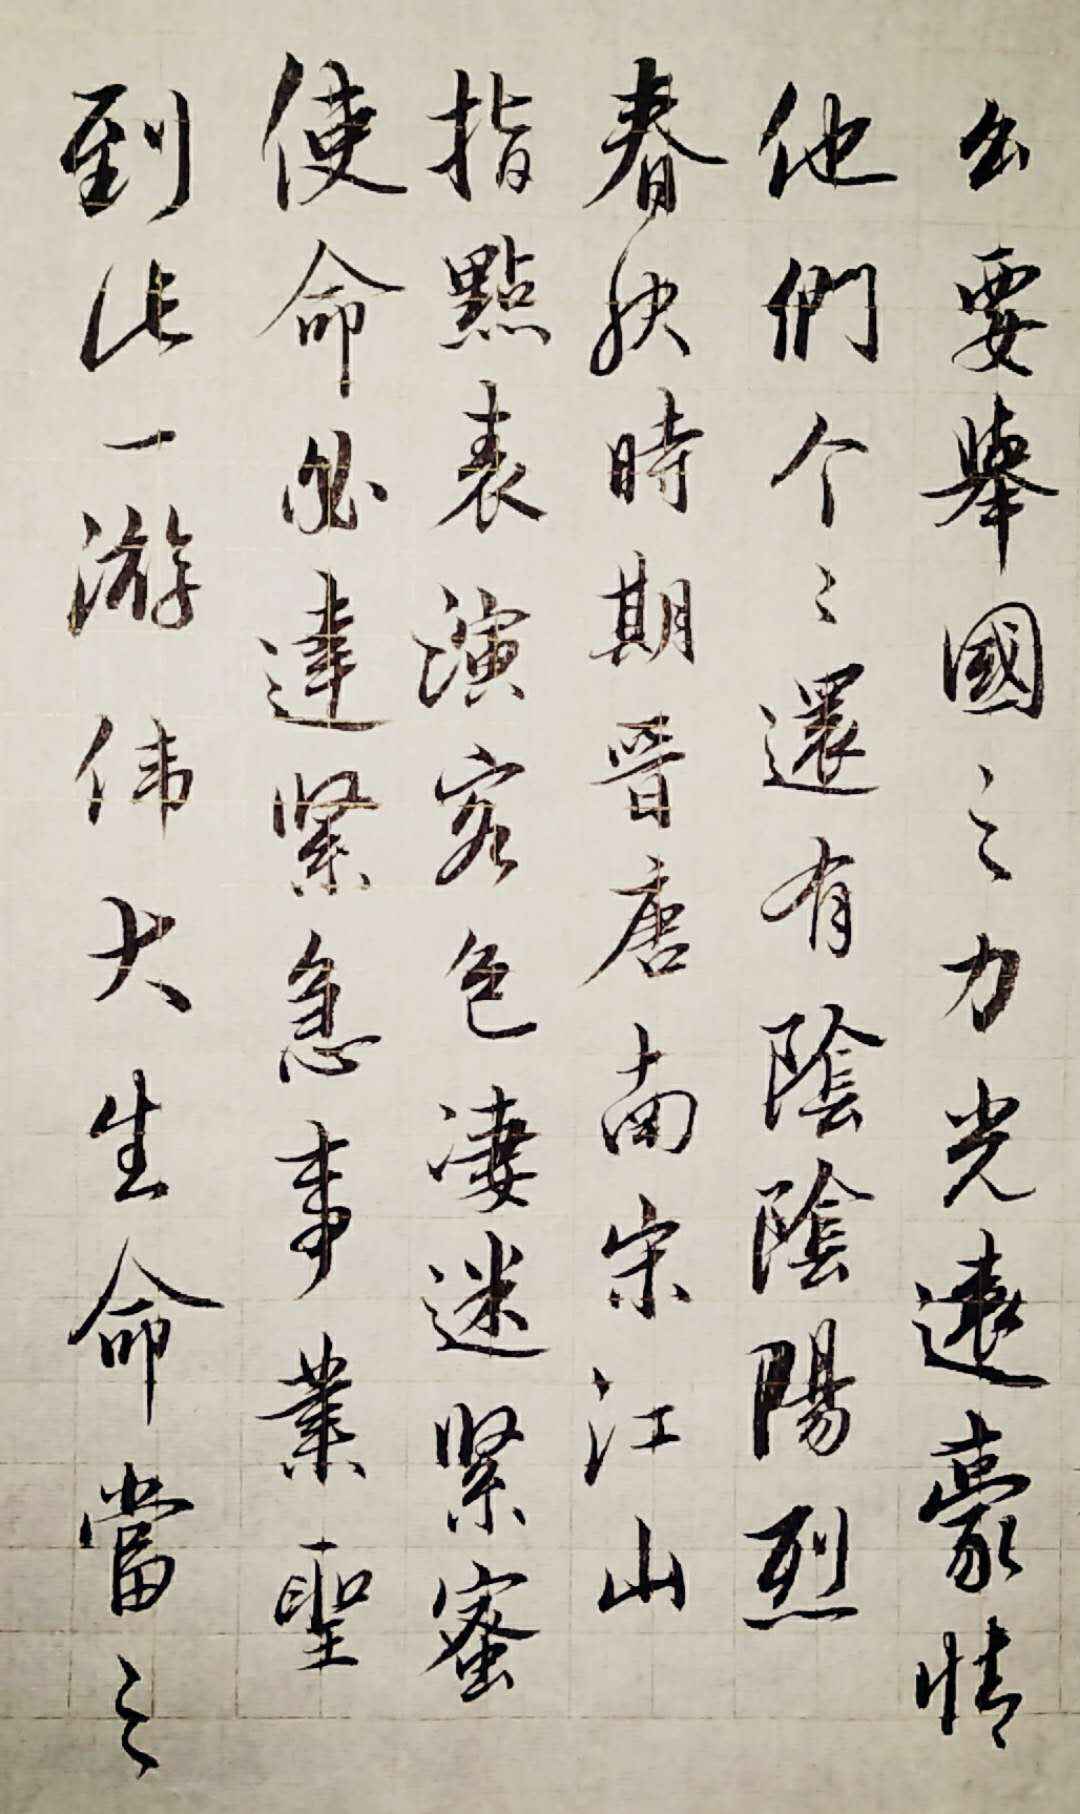 公要舉國之力光遠豪情
他們个々還有陰陰陽烈
春秋時期晉唐南宋江山
指點表演容色凄迷緊蜜
使命必達緊急事業聖
到此一游伟大生命當之